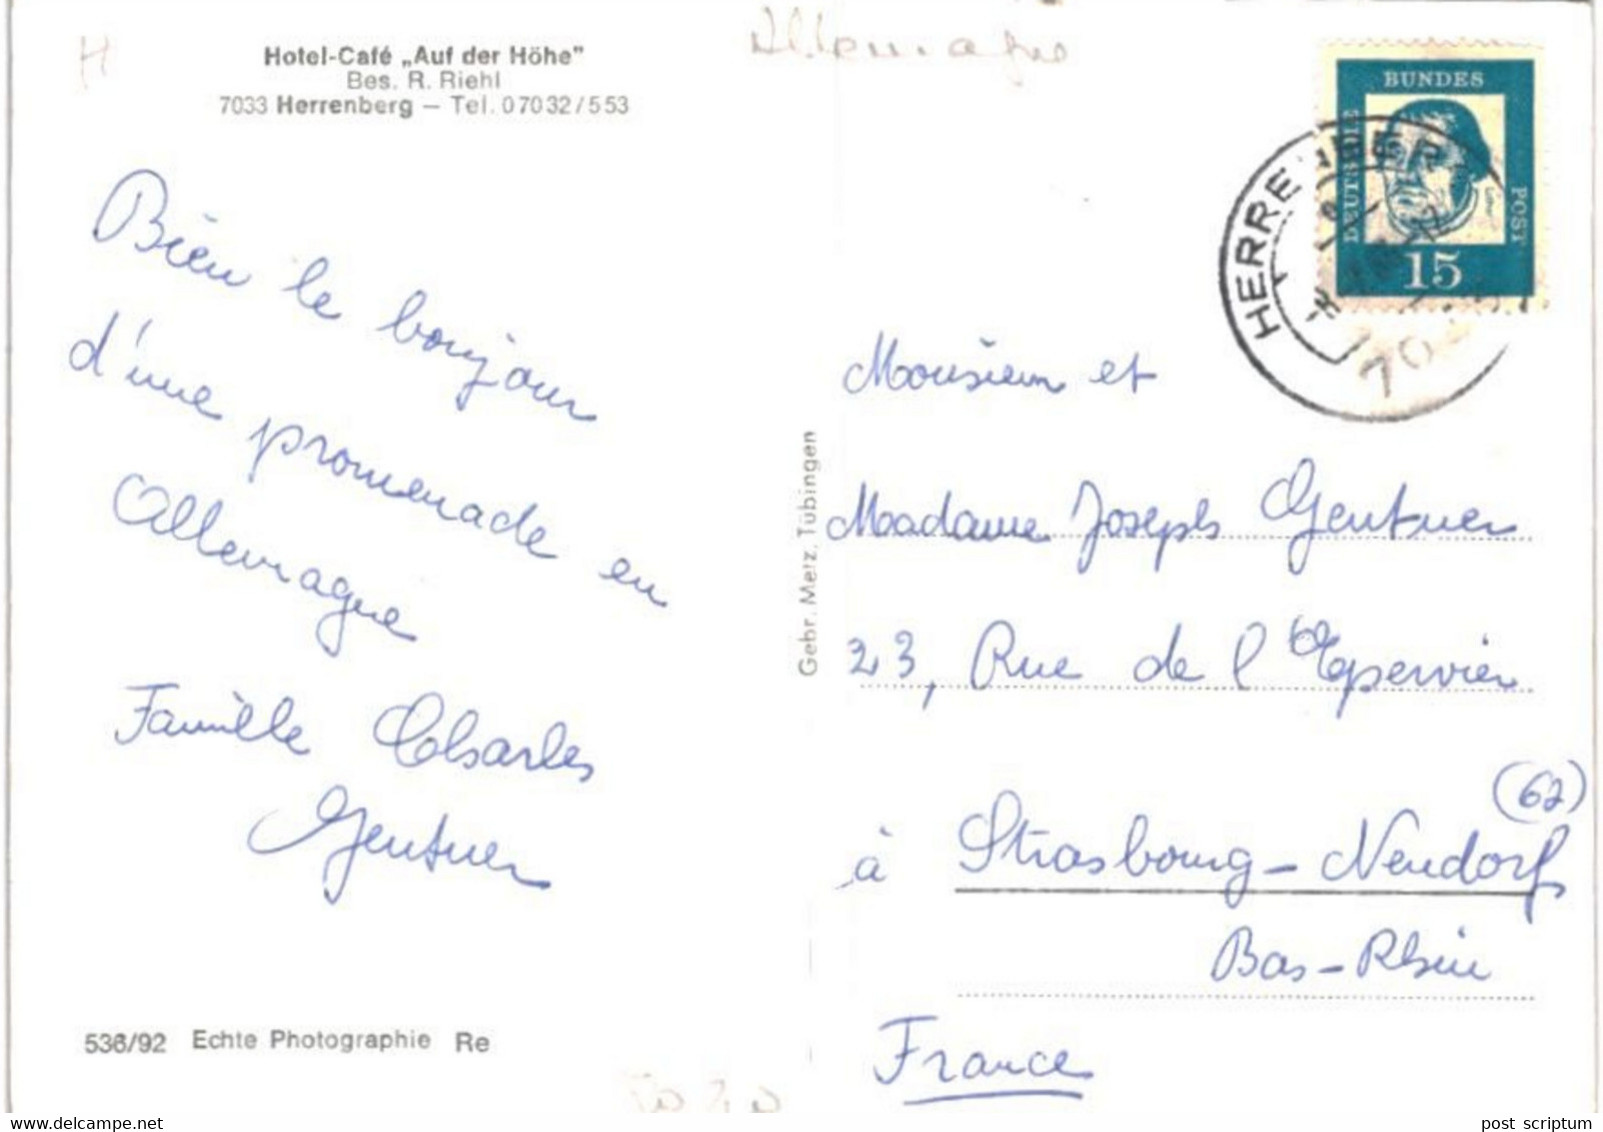 H
Allemagne
Hotel-Café „Auf der Höhe"
Bes. R. Riehl
7033 Herrenberg — Tel. 07032/553
BUNDES
DEUTSCHE
POST
15
HERRENBERG
Bien le bonjour
d'une promenade en
Allemagne
Famille Charles
Gentner
Gebr. Metz, Tübingen
Monsieur et
Madame Joseph Gentner
23, Rue de l'Epervier
(67)
à Strasbourg-Neudorf
Bas-Rhin
France
536/92 Echte Photographie Re
www.delcampe.net
post_scriptum